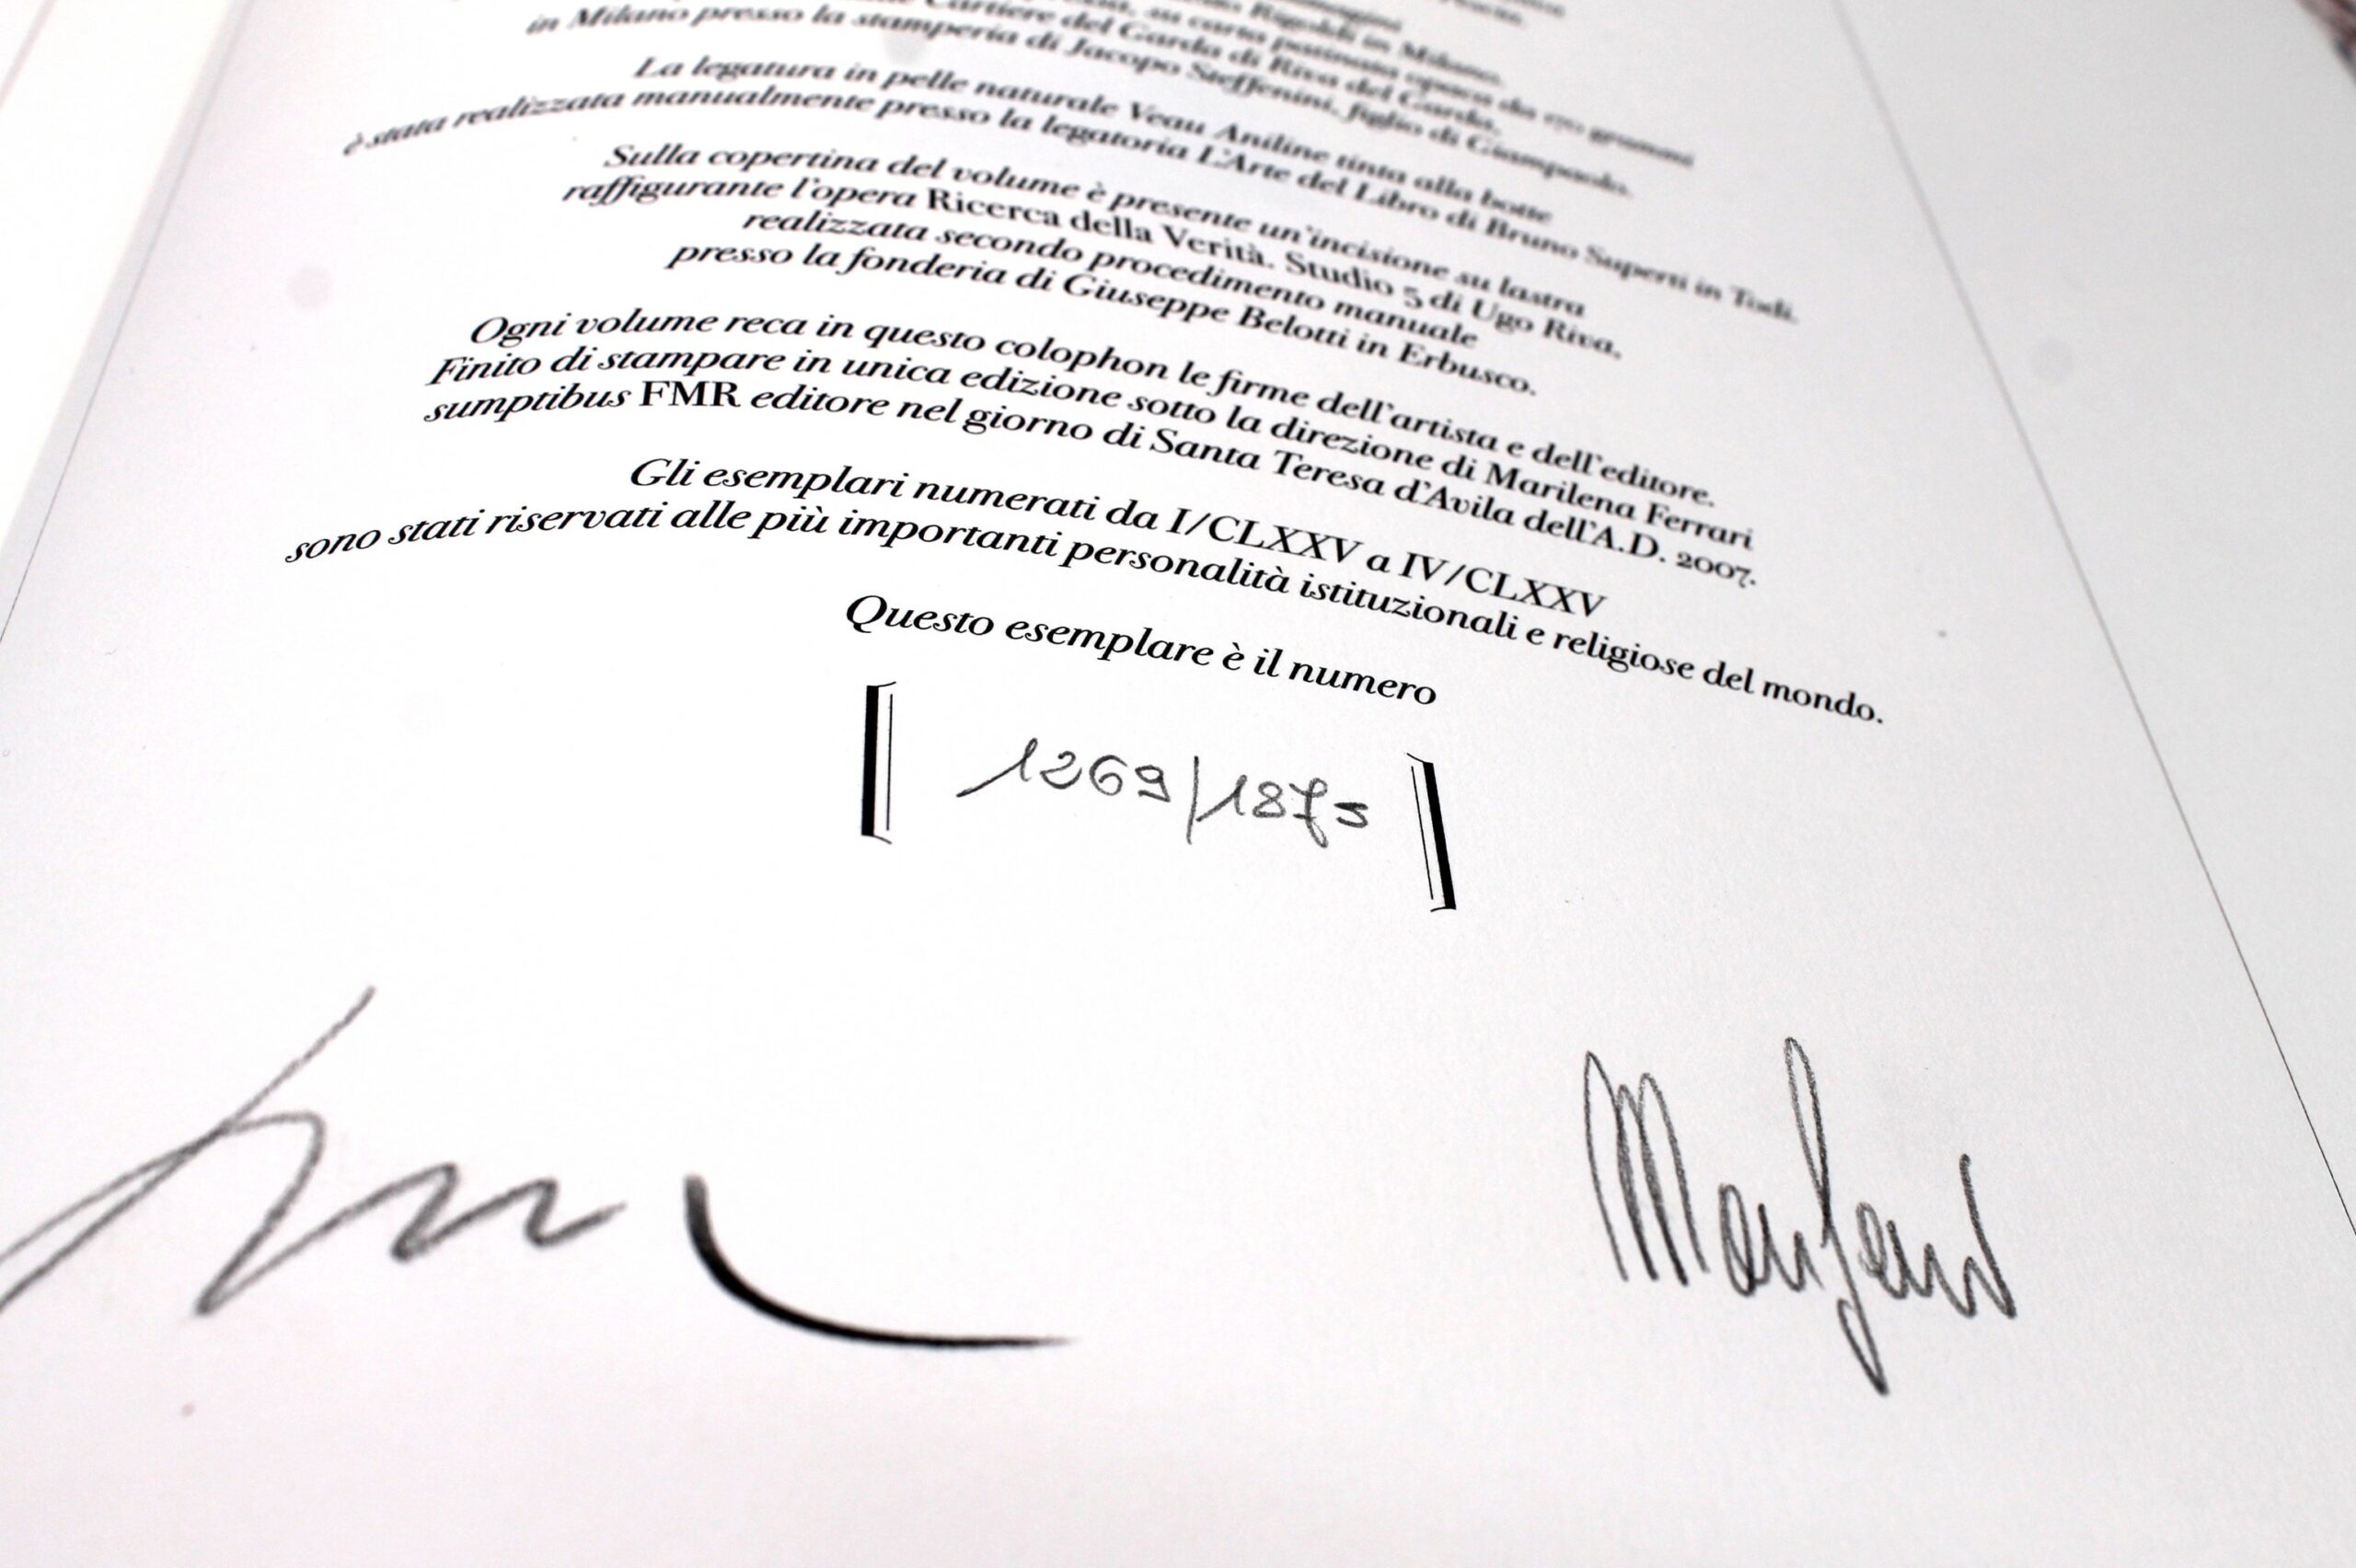 in Milano presso la stamperia di Jacopo Steffenini, figlio di Giampaolo.
La legatura in pelle naturale Veau Aniline tinta alla botte
è stata realizzata manualmente presso la legatoria L'Arte del Libro di Bruno Superti in Todi.
Sulla copertina del volume è presente un'incisione su lastra
raffigurante l'opera Ricerca della Verità. Studio 5 di Ugo Riva,
realizzata secondo procedimento manuale
presso la fonderia di Giuseppe Belotti in Erbusco.
Ogni volume reca in questo colophon le firme dell'artista e dell'editore.
Finito di stampare in unica edizione sotto la direzione di Marilena Ferrari
sumptibus FMR editore nel giorno di Santa Teresa d'Avila dell'A.D. 2007.
Gli esemplari numerati da I/CLXXV a IV/CLXXV
sono stati riservati alle più importanti personalità istituzionali e religiose del mondo.
Questo esemplare è il numero
1269/1875